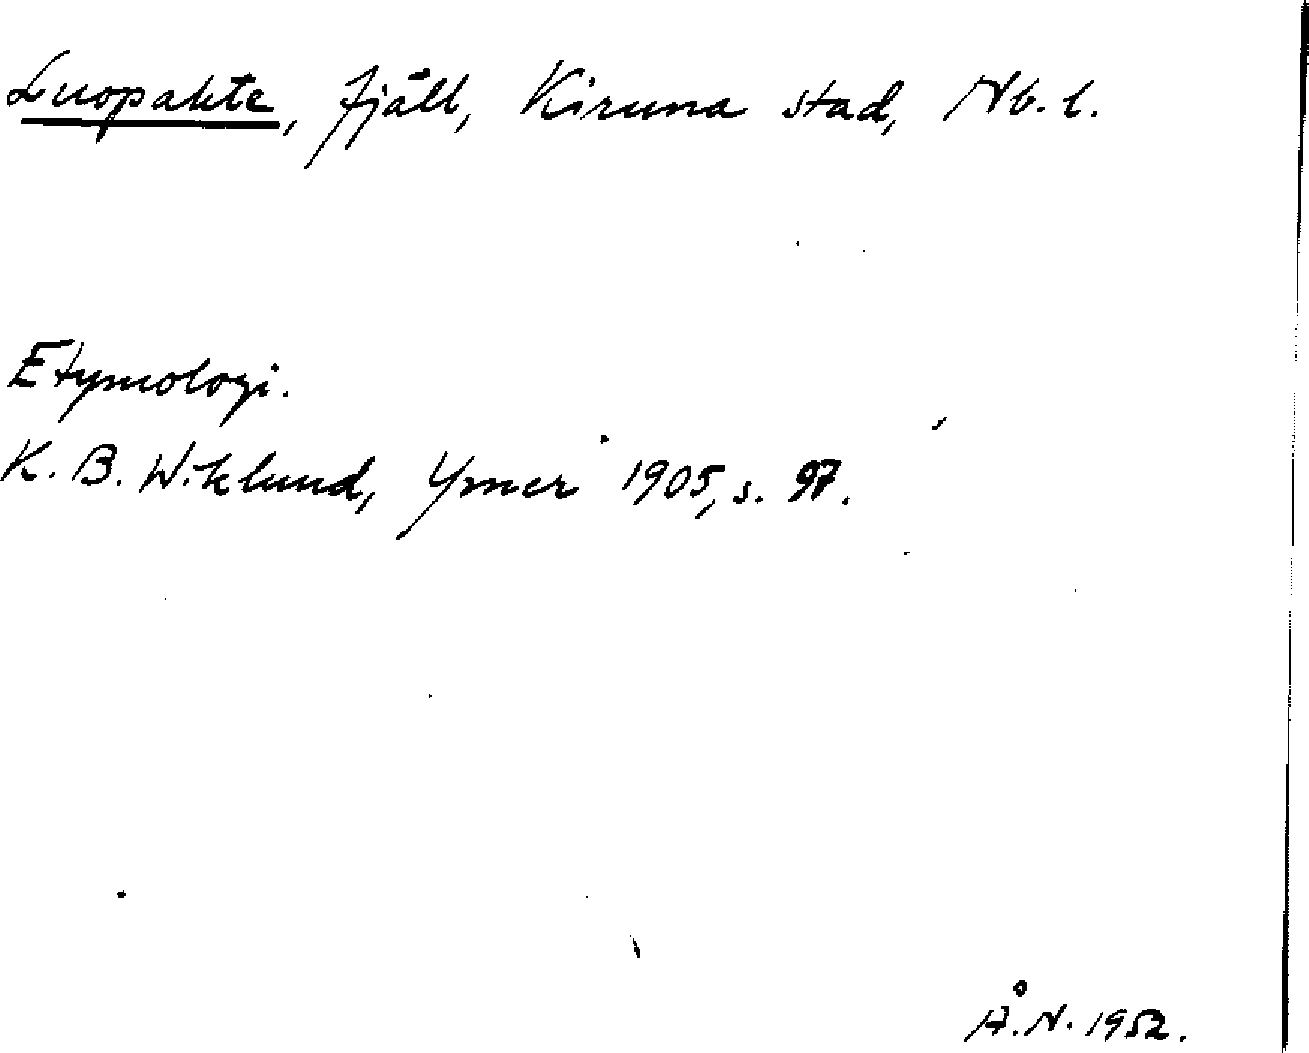 Luopakte, fjäll, Kiruna stad, Nb. l.
Etymologi.
K. B. Wiklund, Ymer 1905, s. 97.
Å. N. 1952.